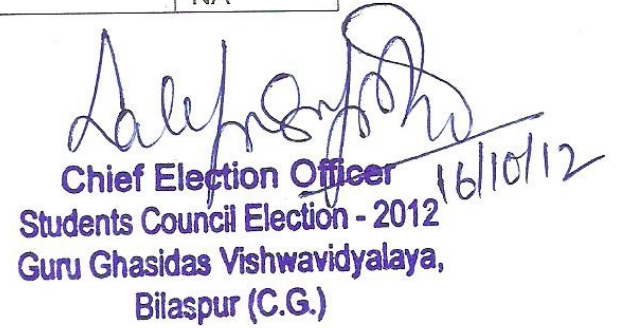 NA
16/10/12
Chief Election Officer
Students Council Election - 2012
Guru Ghasidas Vishwavidyalaya,
Bilaspur (C.G.)